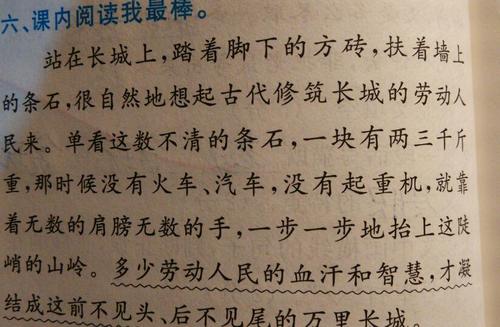 六、课内阅读我最棒。
站在长城上,踏着脚下的方砖,扶着墙上
的条石,很自然地想起古代修筑长城的劳动人
民来。单看这数不清的条石,一块有两三千斤
重,那时候没有火车、汽车,没有起重机,就靠
着无数的肩膀无数的手,一步一步地抬上这陡
峭的山岭。多少劳动人民的血汗和智慧,才凝
结成这前不见头、后不见尾的万里长城。